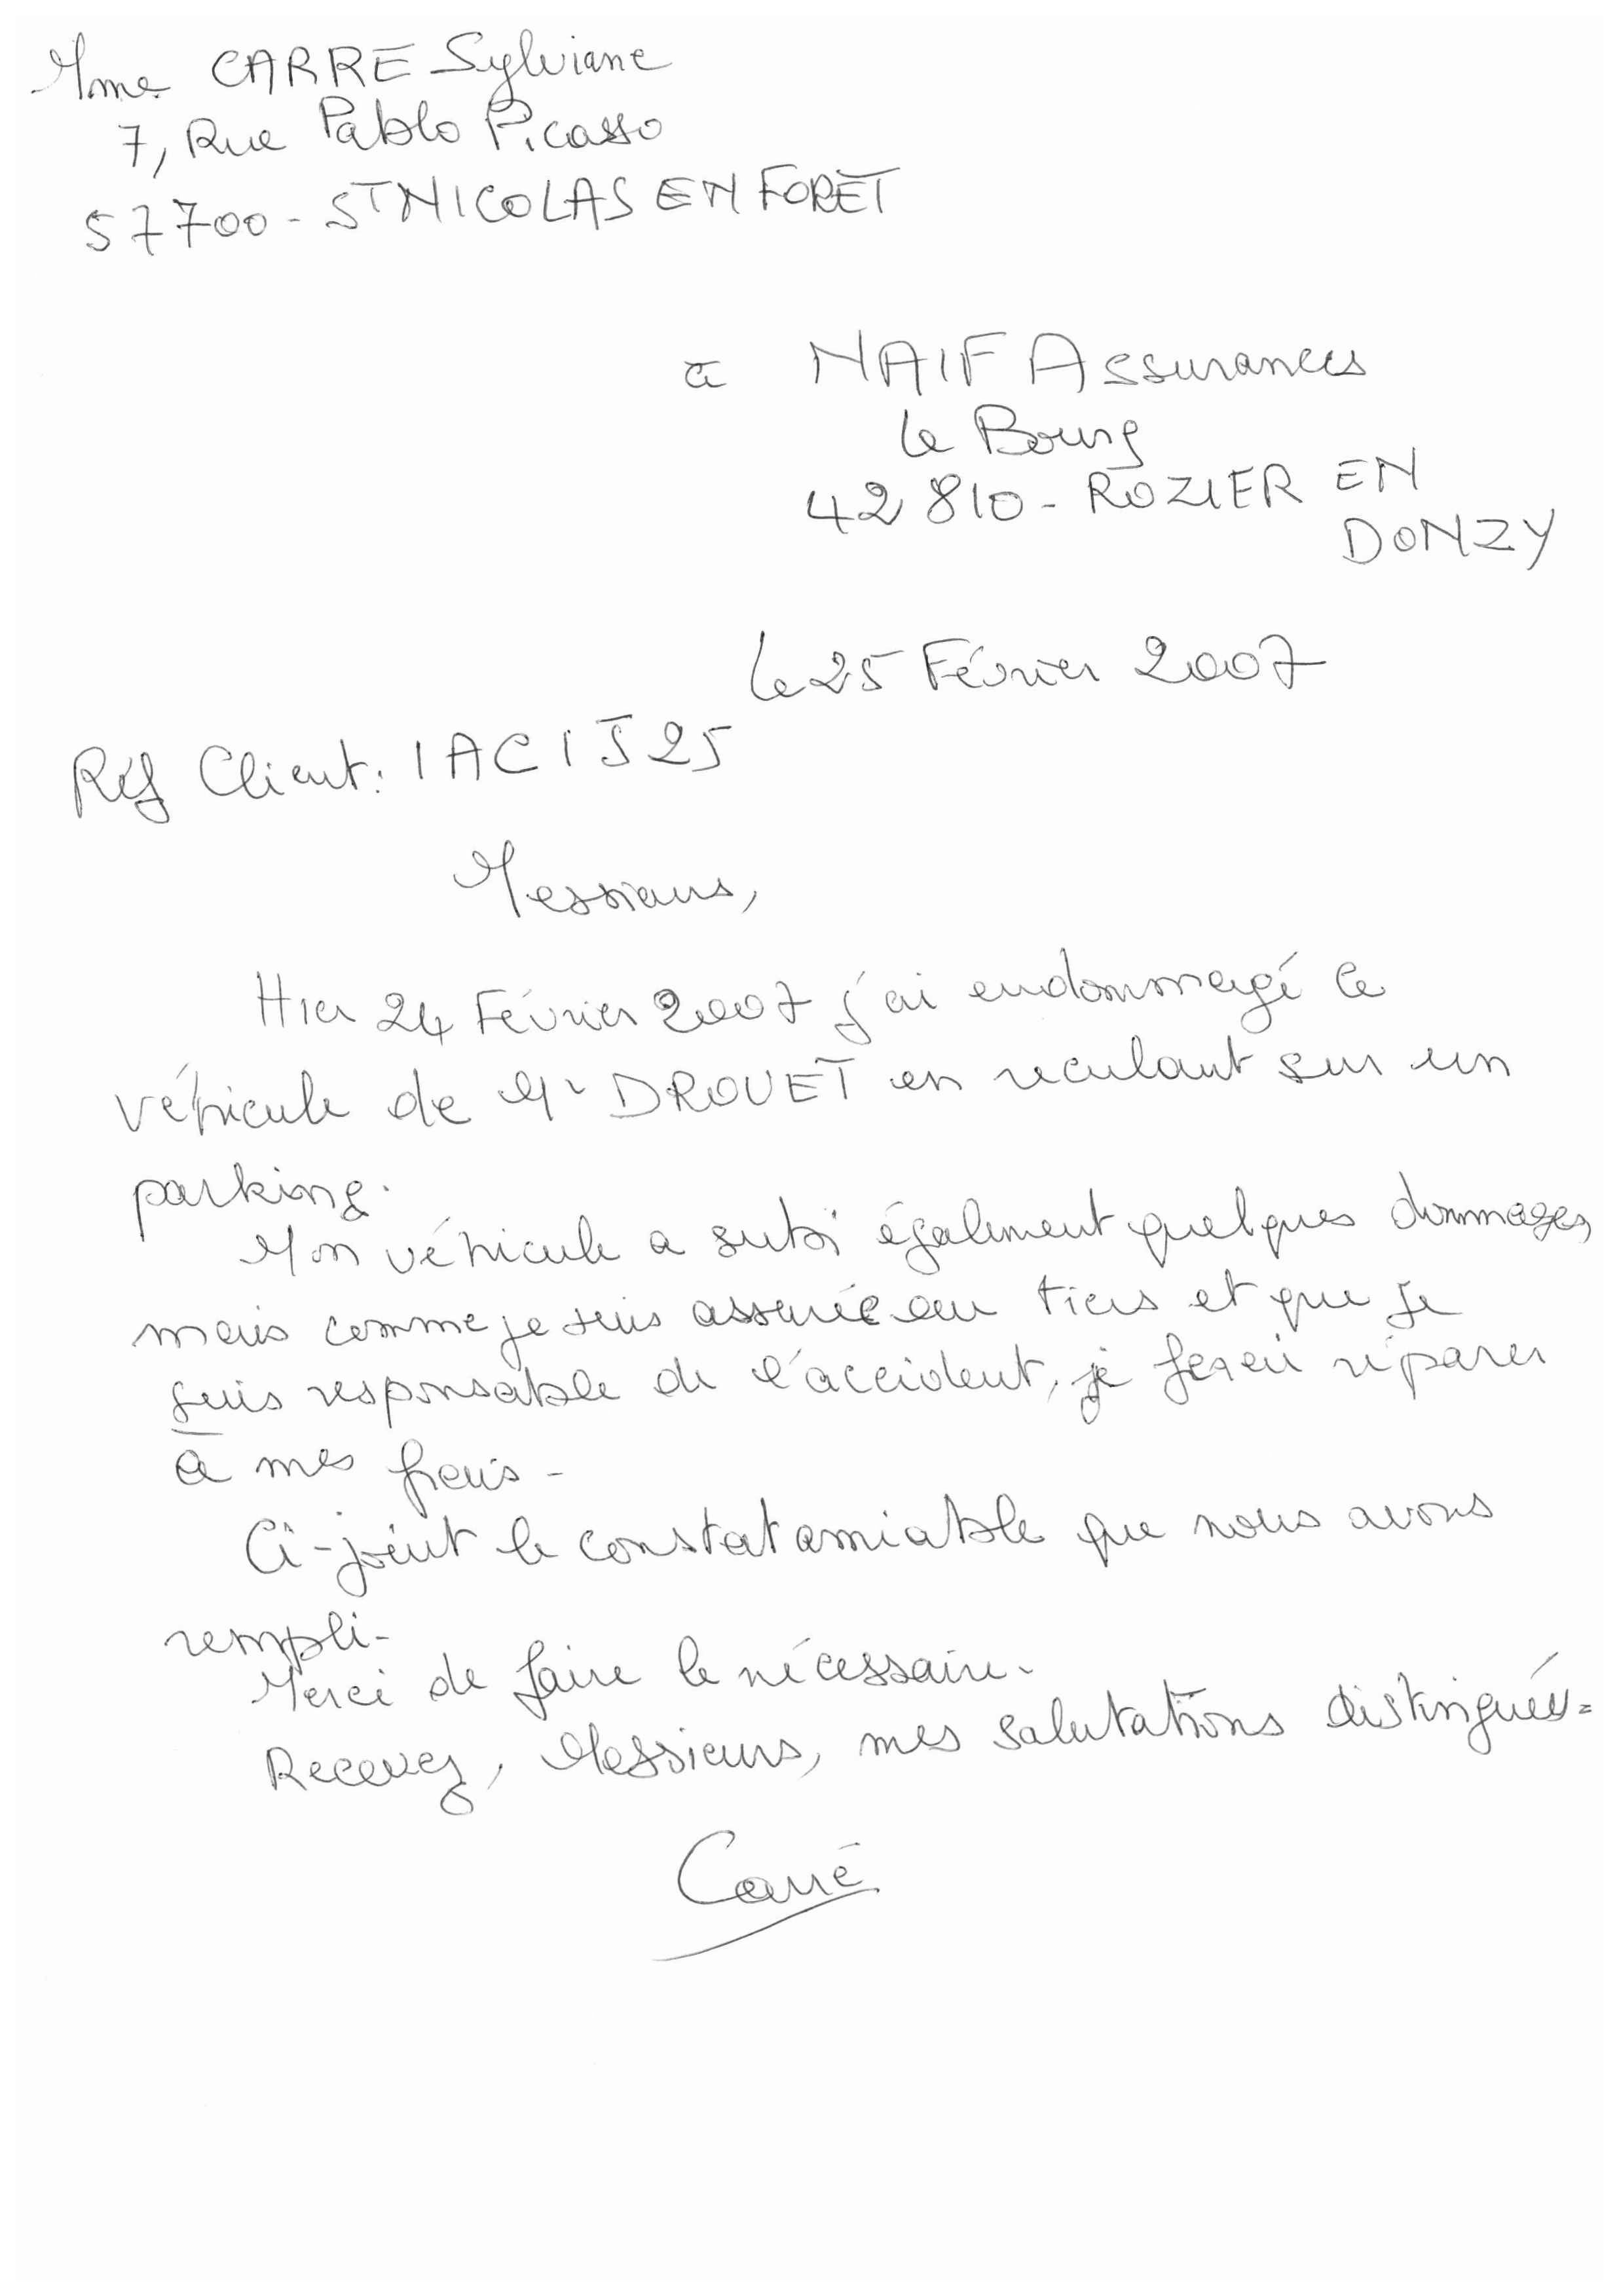 Mme CARRE Sylviane
7, Rue Pablo Picasso
57700 - ST NICOLAS EN FORET
à NAIF Assurances
le Bourg
42 810 - ROZIER EN
DONZY
le 25 Février 2007
Réf Client : IACIJ25
Messieurs,
Hier 24 Février 2007 j'ai endommagé le
véhicule de Mr DROUET en reculant sur un
parking.
Mon véhicule a subi également quelques dommages,
mais comme je suis assurée au tiers et que je
suis responsable de l'accident, je ferai réparer
à mes frais -
Ci-joint le constat amiable que nous avons
rempli -
Merci de faire le nécessaire -
Recevez, Messieurs, mes salutations distinguées -
Carré